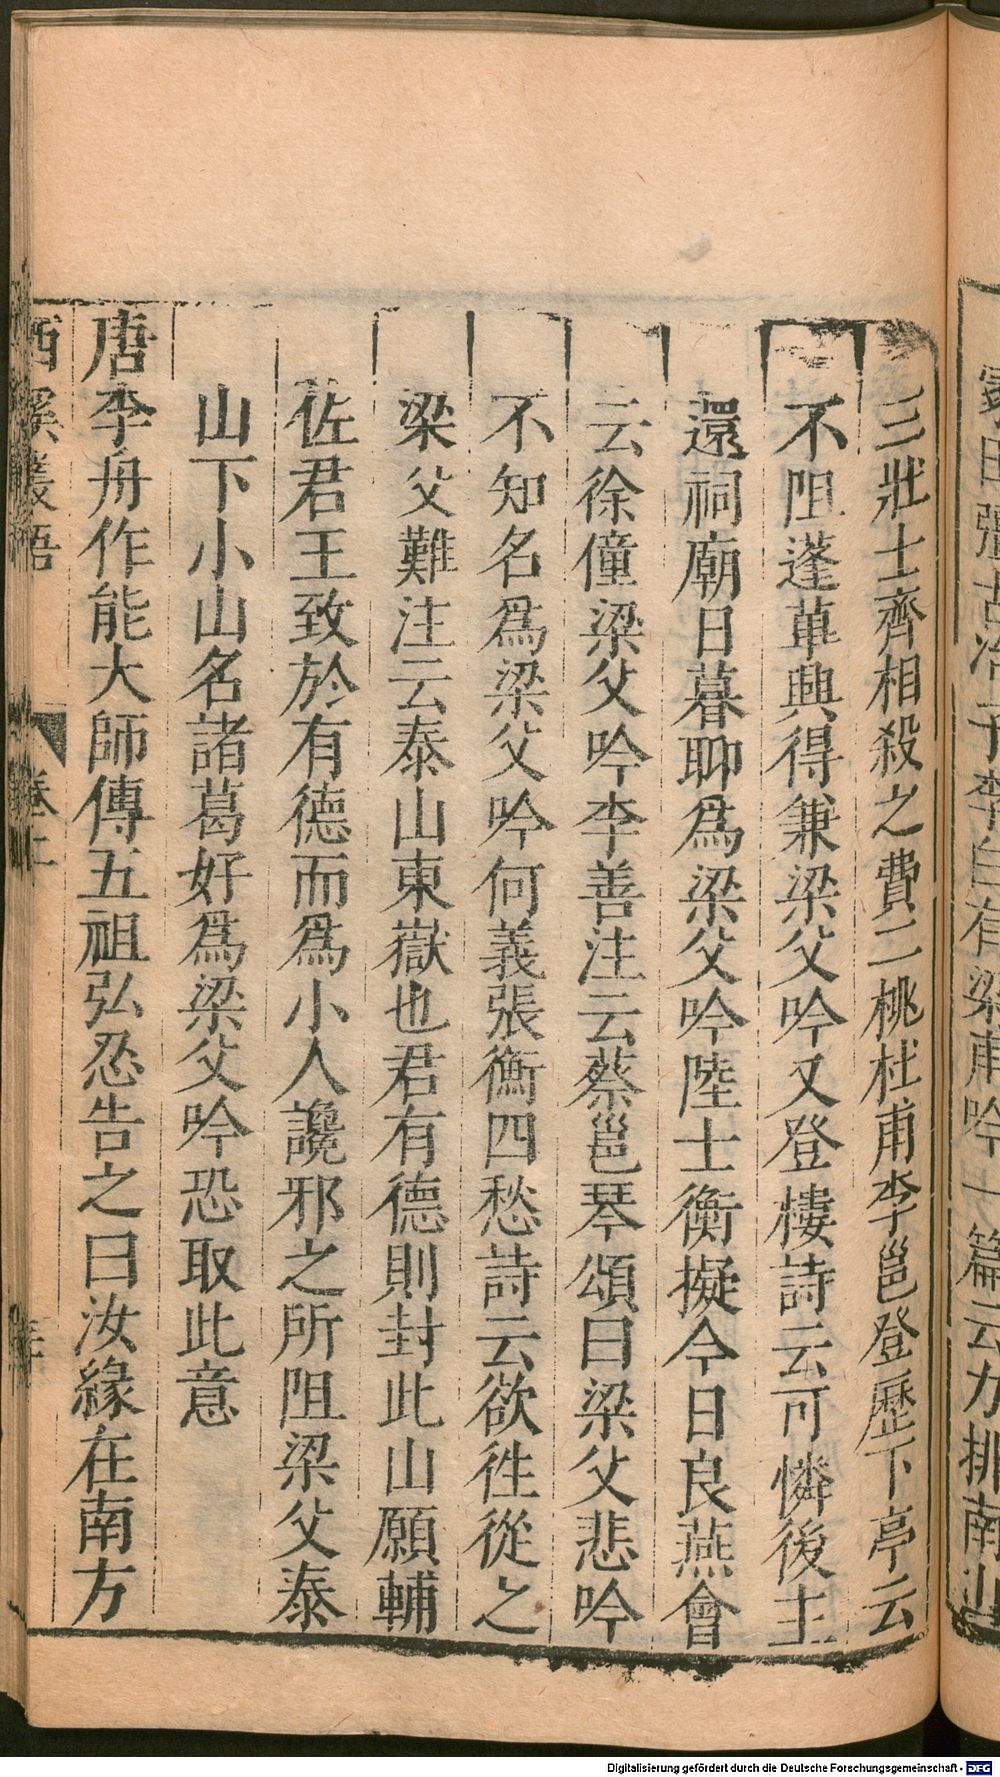 三壯士齊相殺之費二桃杜甫李邕登歷下亭云
不阻蓬蓽興得兼梁父吟又登樓詩云可憐後主
還祠廟日暮聊爲梁父吟陸士衡擬今日良燕會
云徐僮梁父吟李善注云蔡邕琴頌曰梁父悲吟
不知名爲梁父吟何義張衡四愁詩云欲徃從之
梁父難注云泰山東嶽也君有德則封此山願輔
佐君王致於有德而爲小人讒邪之所阻梁父泰
山下小山名諸葛好爲梁父吟恐取此意
唐李舟作能大師傳五祖弘忍告之曰汝緣在南方
西溪叢語 卷上
Digitalisierung gefördert durch die Deutsche Forschungsgemeinschaft - DFG